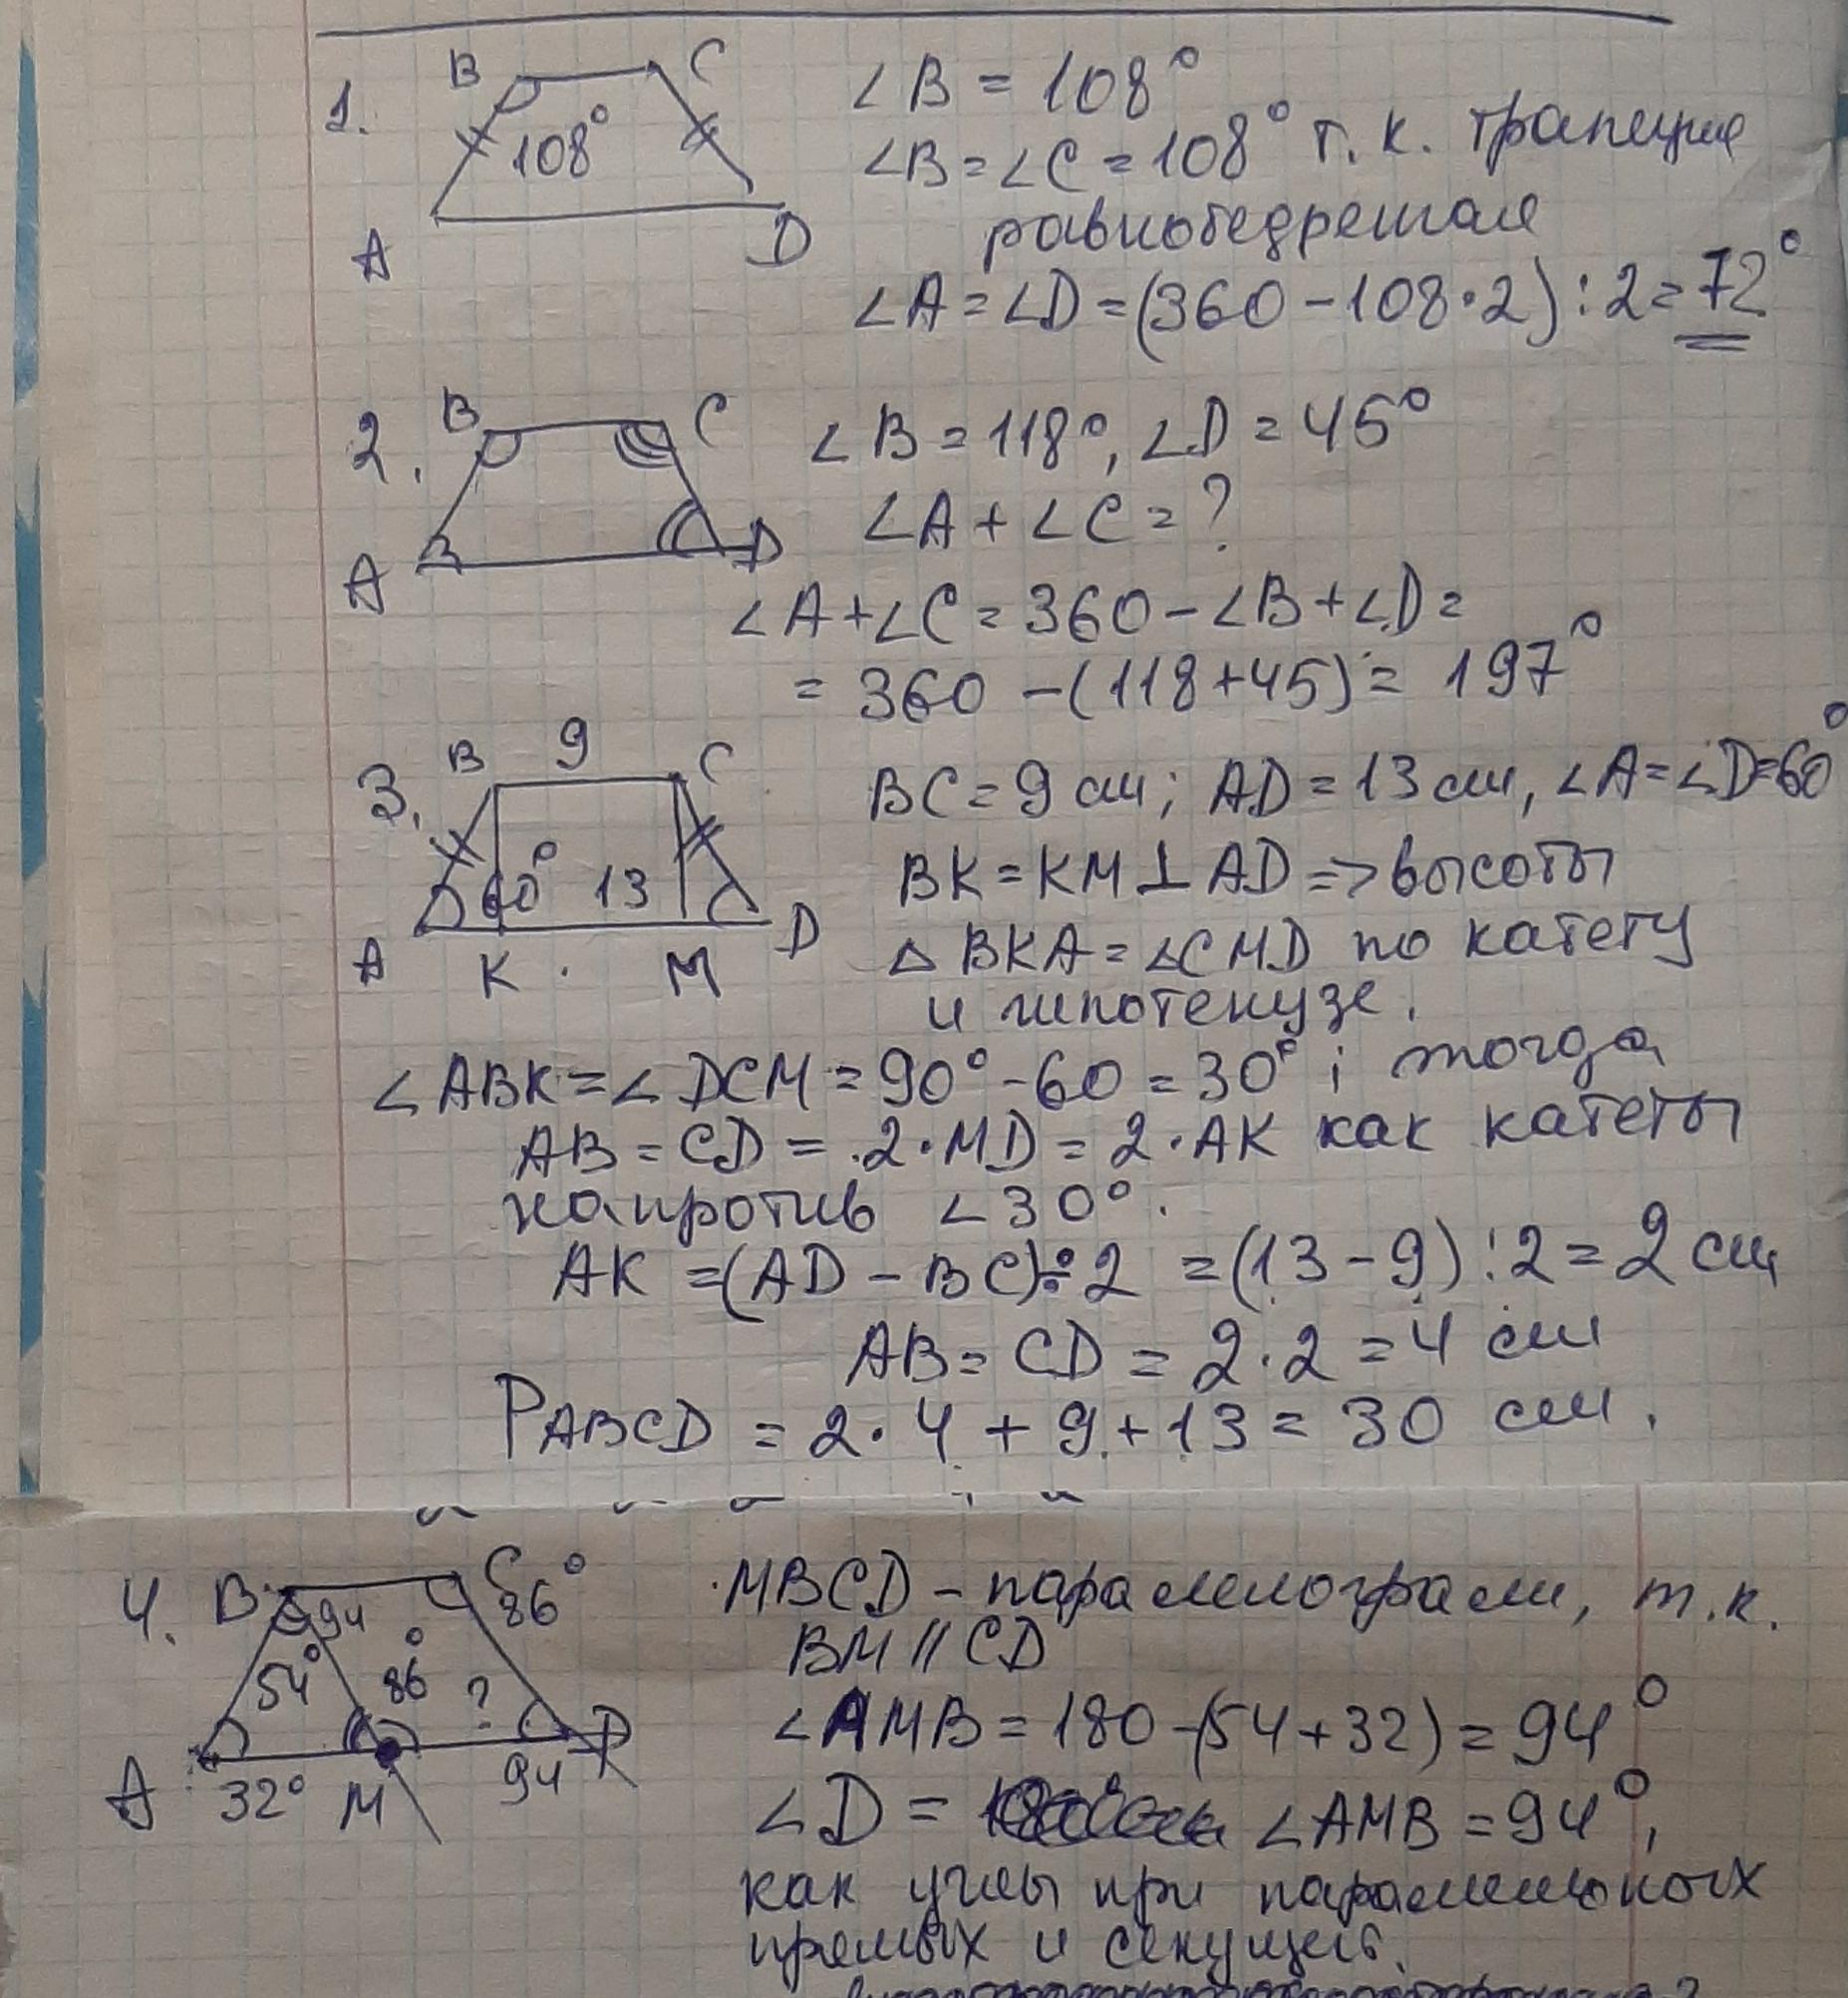 1.
B C
108°
A D
∠B = 108°
∠B = ∠C = 108° т. к. трапеция
равнобедренная
∠A = ∠D = (360 - 108 · 2) : 2 = 72°
2.
B C
A D
∠B = 118°, ∠D = 45°
∠A + ∠C = ?
∠A + ∠C = 360 - ∠B + ∠D =
= 360 - (118 + 45) = 197°
3.
B 9 C
60° 13
A K M D
BC = 9 см; AD = 13 см, ∠A = ∠D = 60°
BK = KM ⊥ AD => высоты
△ BKA = △ CMD по катету
и гипотенузе.
∠ABK = ∠DCM = 90° - 60 = 30° ; тогда
AB = CD = 2 · MD = 2 · AK как катеты
напротив ∠30°.
AK = (AD - BC) : 2 = (13 - 9) : 2 = 2 см
AB = CD = 2 · 2 = 4 см
PABCD = 2 · 4 + 9 + 13 = 30 см.
4.
B C 86°
94
54° 86° ?
A 32° M 94 D
MBCD - параллелограмм, т. к.
BM || CD
∠AMB = 180 - (54 + 32) = 94°
∠D = ∠AMB = 94°,
как углы при параллельных
прямых и секущей.